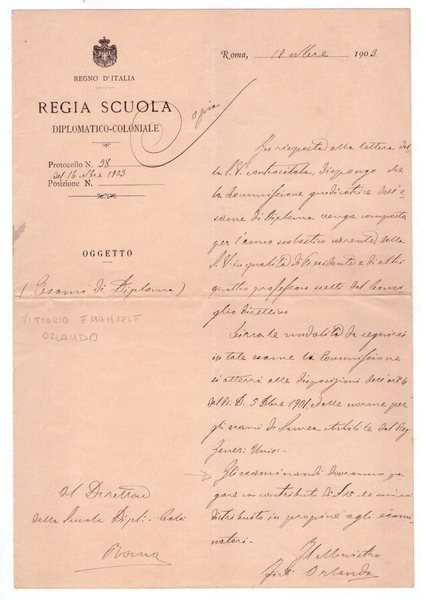 REGNO D'ITALIA
REGIA SCUOLA
DIPLOMATICO-COLONIALE
Protocollo N. 98
del 16 9bre 1903
Posizione N.
OGGETTO
(Esami di Diploma)
VITTORIO EMANUELE
ORLANDO
Al Direttore
della Scuola Dipl.- Colo.
Roma
Copia
Roma, 18 9bre 1903
In risposta alla lettera del
la S.V. controcitata, dispongo che
la Commissione giudicatrice dell'e
same di Diploma venga composta
per l'anno scolastico corrente della
S.V. in qualità di Presidente e di altri
quattro professori scelti dal Consi
glio Direttivo
Circa le modalità da seguirsi
in tale esame la Commissione
si atterrà alle disposizioni dell'art 6
del R. D. 5 Dbre 1901 e dalle norme per
gli esami di Laurea stabilite dal Reg.
Gener. Univ.
Gli esaminandi dovranno pa
gare un contributo di
distribuito in propine agli esami
natori.
Il Ministro
firto Orlando